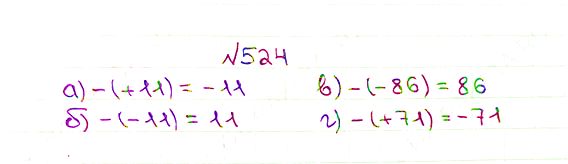 №524
а) -(+11) = -11 в) -(-86) = 86
б) -(-11) = 11 г) -(+71) = -71